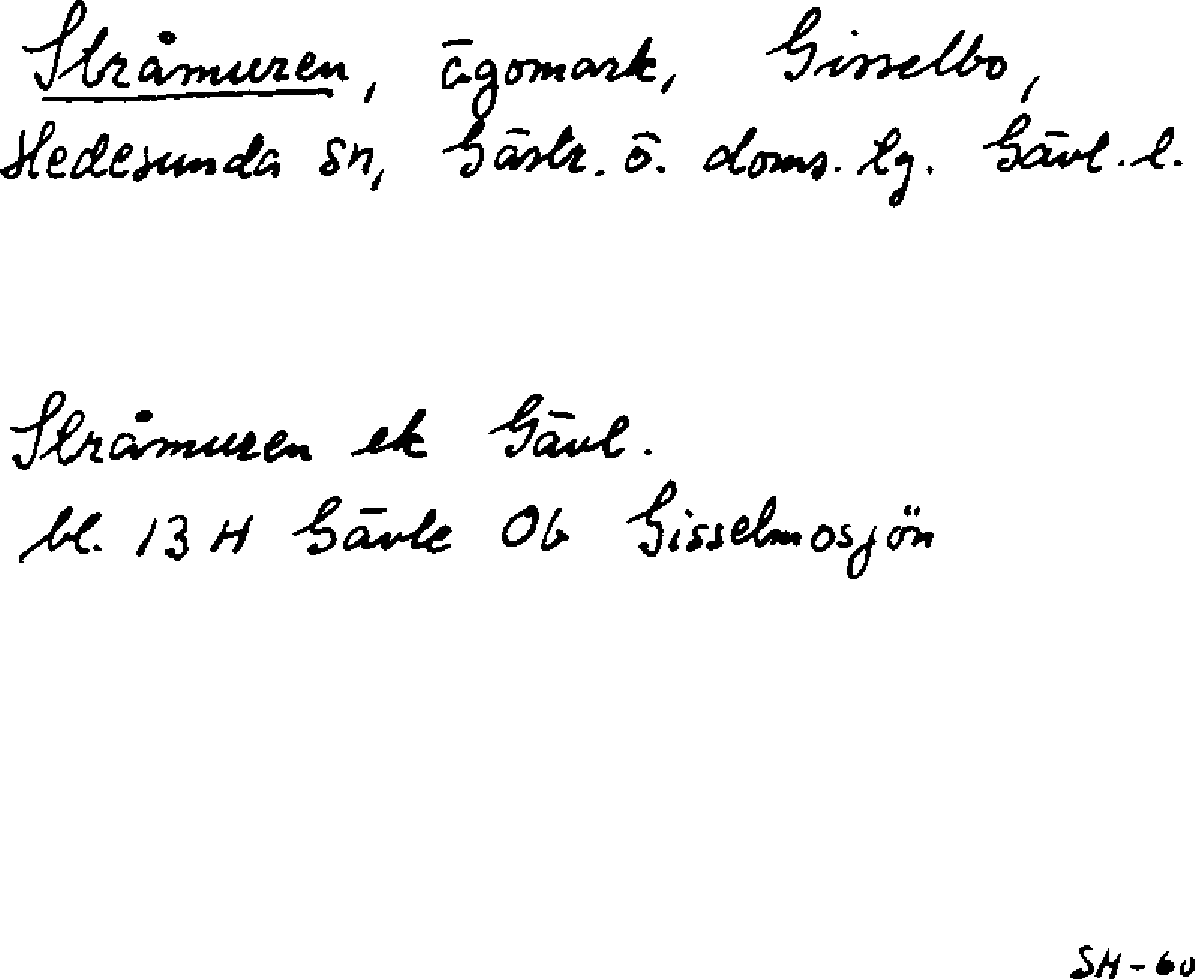 Stråmuren, ägomark, Gisselbo,
Hedesunda sn, Gästr. ö. doms. lg. Gävl. l.
Stråmuren ek Gävl.
bl. 13 H Gävle Ob Gisselmosjön
SH-60